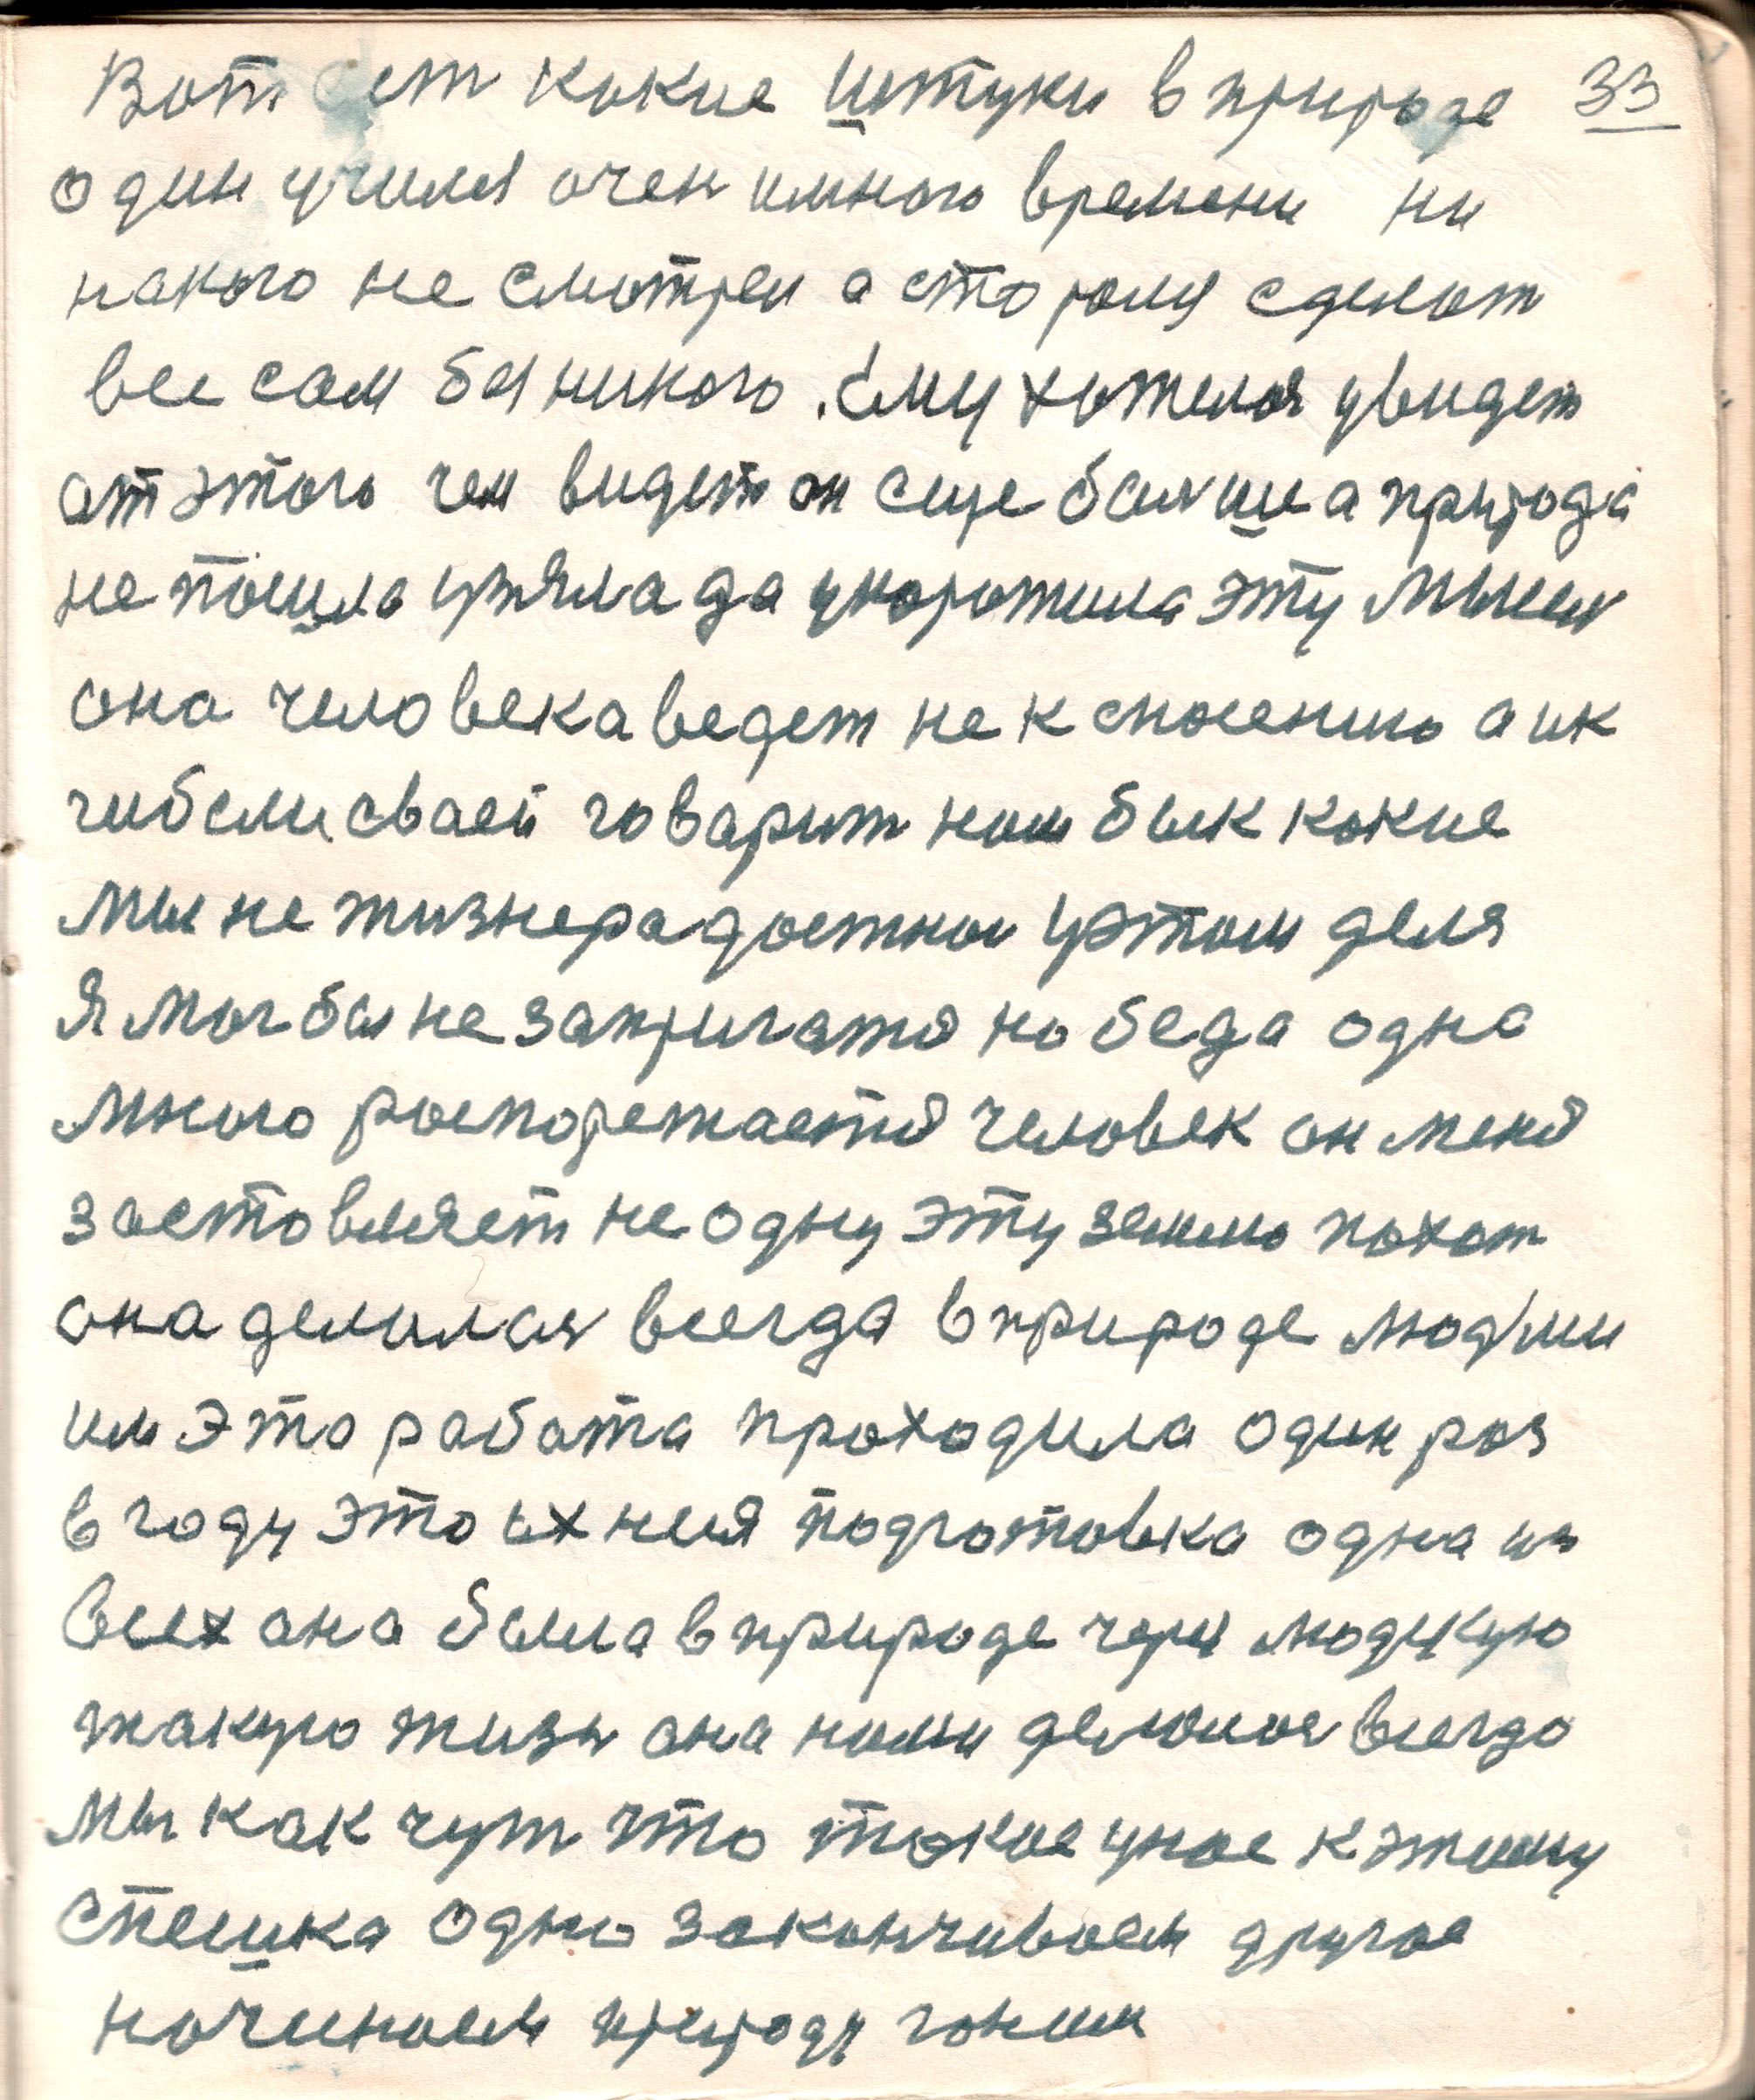 Вот ест какие штуки в природе 33
один училя очен имного времени ни
накого не смотрел а староля сделат
все сам без никого. Ему хотелоя увидет
от этого чем видет он еще болше а природа
не пошла узяла да укоротила эту мысль
она человека ведет не к спасению а ик
гибели сваей говарит нам бык какие
мы не жизнерадостнои уэтом деля
я мог бы не запригатя но беда одна
много роспорежаетя человек он меня
заставляет не одну эту землю пахат
она делилася всегда в природе людми
им это работа проходила один раз
в году это ихнея подготовка одна из
всех она была в природе через людцкую
такую жизн она нами делилоя всегда
мы как чут что такое уное к этому
спешка одно заканчиваем другое
начинаем природу гоним